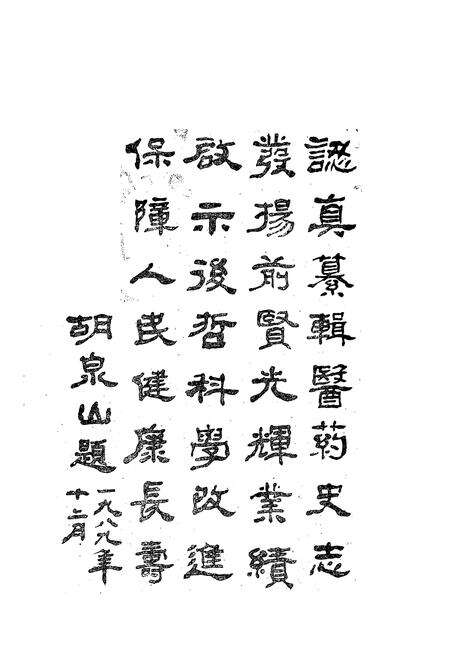 認真纂輯醫药史志
發揚前賢光輝業績
啟示後哲科學改進
保障人民健康長壽
胡泉山題
一九八九年
十二月